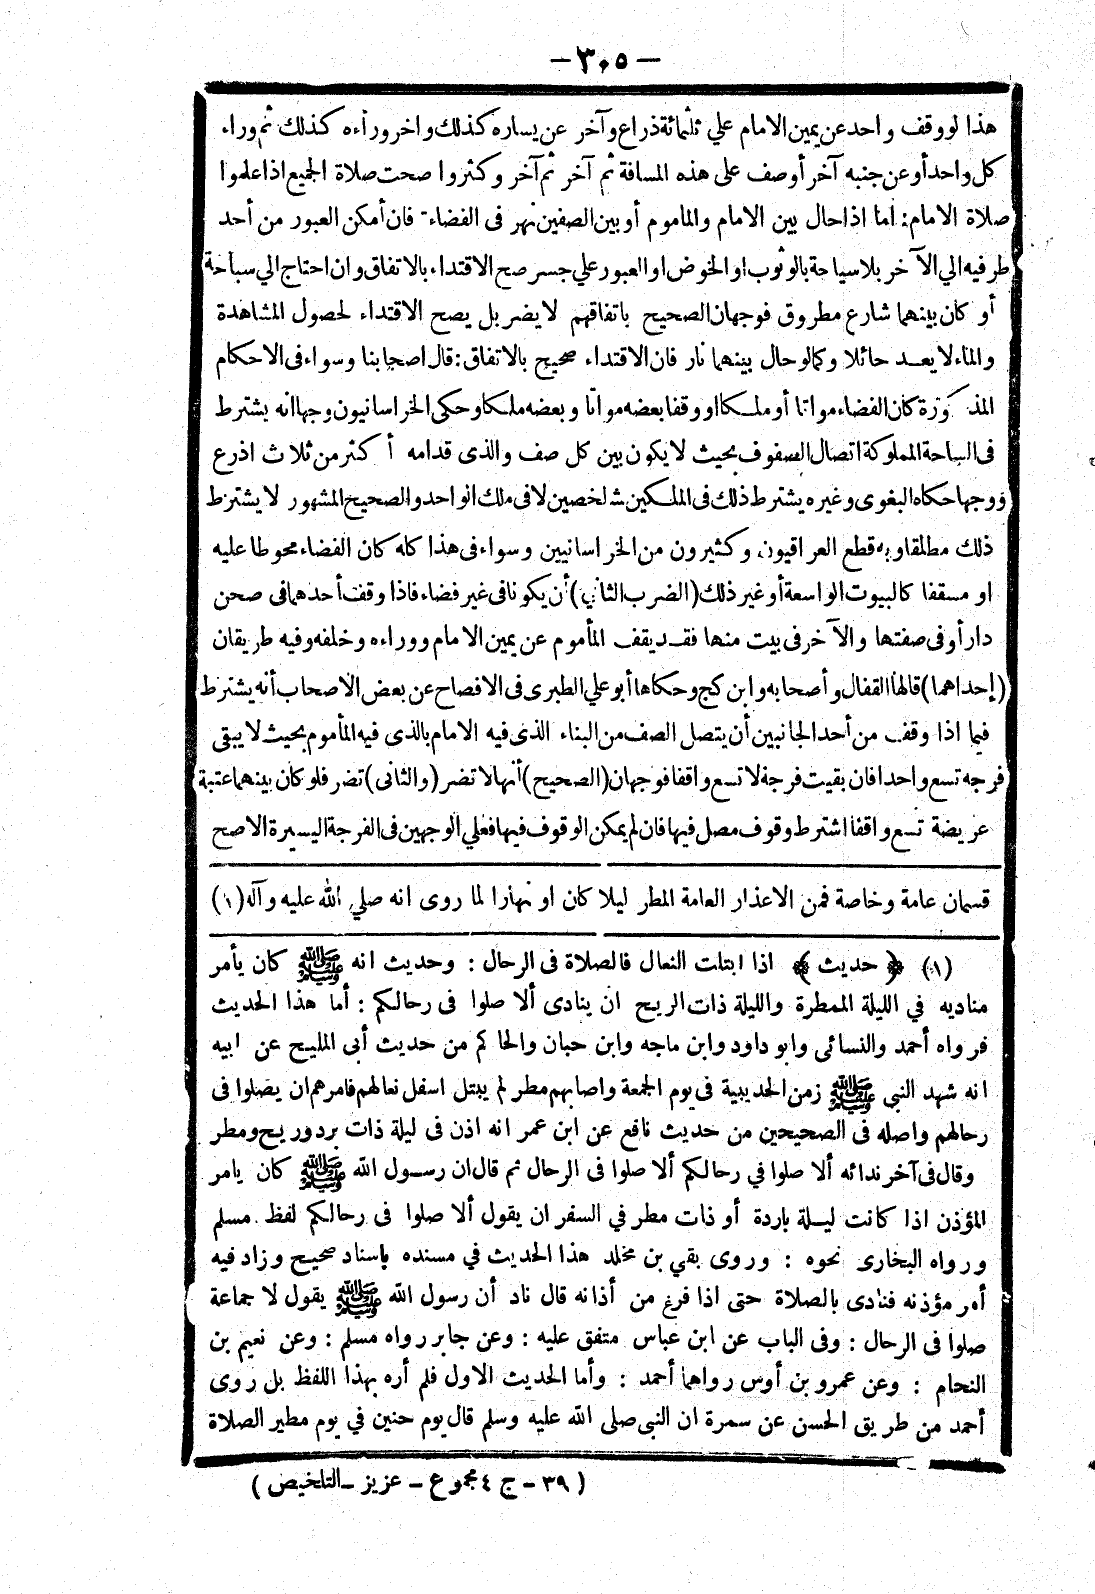 -٣٠٥-
هذا لو وقف واحد عن يمين الامام علي ثلثمائة ذراع وآخر عن يساره كذلك وآخر وراءه كذلك ثم وراء
كل واحد أو عن جنبه آخر أو صف على هذه المسافة ثم آخر ثم آخر وكثروا صحت صلاة الجميع اذا علموا
صلاة الامام: اما اذا حال بين الامام والمأموم أو بين الصفين نهر فى الفضاء فان أمكن العبور من أحد
طرفيه الي الآخر بلا سباحة بالوثوب او الخوض او العبور علي جسر صح الاقتداء بالاتفاق وان احتاج الي سباحة
أو كان بينهما شارع مطروق فوجهان الصحيح باتفاقهم لا يضر بل يصح الاقتداء لحصول المشاهدة
والماء لا يعد حائلا وكما لو حال بينهما نار فان الاقتداء صحيح بالاتفاق: قال اصحابنا وسواء فى الاحكام
المذكورة كان الفضاء مواتا أو ملكا او وقفا بعضه مواتا وبعضه ملكا وحكى الخراسانيون وجها انه يشترط
فى الساحة المملوكة اتصال الصفوف بحيث لا يكون بين كل صف والذى قدامه أكثر من ثلاث اذرع
ووجها حكاه البغوى وغيره يشترط ذلك فى الملكين شخصين لا فى ملك الواحد والصحيح المشهور لا يشترط
ذلك مطلقا وبه قطع العراقيون وكثيرون من الخراسانيين وسواء فى هذا كله كان الفضاء محوطا عليه
او مسقفا كالبيوت الواسعة أو غير ذلك (الضرب الثاني) أن يكونا فى غير فضاء فاذا وقف أحدهما فى صحن
دار أو فى صفتها والآخر فى بيت منها فقد يقف المأموم عن يمين الامام ووراءه وخلفه وفيه طريقان
(إحداهما) قالها القفال وأصحابه وابن كج وحكاها أبو علي الطبرى فى الافصاح عن بعض الاصحاب أنه يشترط
فيما اذا وقف من أحد الجانبين أن يتصل الصف من البناء الذى فيه الامام بالذى فيه المأموم بحيث لا يبقى
فرجه تسع واحدا فان بقيت فرجة لا تسع واقفا فوجهان (الصحيح) أنها لا تضر (والثانى) تضر فلو كان بينهما عتبة
عريضة تسع واقفا اشترط وقوف مصل فيها فان لم يمكن الوقوف فيها فعلي الوجهين فى الفرجة اليسيرة الاصح
قسمان عامة وخاصة فمن الاعذار العامة المطر ليلا كان او نهارا لما روى انه صلي الله عليه وآله (١)
(١) ﴿ حديث ﴾ اذا ابتلت النعال فالصلاة فى الرحال : وحديث انه ﷺ كان يأمر
مناديه في الليلة الممطرة والليلة ذات الريح ان ينادى ألا صلوا فى رحالكم : أما هذا الحديث
فرواه أحمد والنسائى وابو داود وابن ماجه وابن حبان والحاكم من حديث أبى المليح عن ابيه
انه شهد النبى ﷺ زمن الحديبية فى يوم الجمعة واصابهم مطر لم يبتل اسفل نعالهم فامرهم ان يصلوا فى
رحالهم واصله فى الصحيحين من حديث نافع عن ابن عمر انه اذن فى ليلة ذات برد وريح ومطر
وقال فى آخر ندائه ألا صلوا في رحالكم ألا صلوا فى الرحال ثم قال ان رسول الله ﷺ كان يامر
المؤذن اذا كانت ليلة باردة أو ذات مطر في السفر ان يقول ألا صلوا فى رحالكم لفظ مسلم
ورواه البخارى نحوه : وروى بقي بن مخلد هذا الحديث في مسنده باسناد صحيح وزاد فيه
أمر مؤذنه فنادى بالصلاة حتى اذا فرغ من أذانه قال ناد أن رسول الله ﷺ يقول لا جماعة
صلوا فى الرحال : وفى الباب عن ابن عباس متفق عليه : وعن جابر رواه مسلم : وعن نعيم بن
النحام : وعن عمرو بن أوس رواهما أحمد : وأما الحديث الاول فلم أره بهذا اللفظ بل روى
أحمد من طريق الحسن عن سمرة ان النبى صلى الله عليه وسلم قال يوم حنين في يوم مطير الصلاة
(٣٩ - ج ٤ مجموع - عزيز - التلخيص)